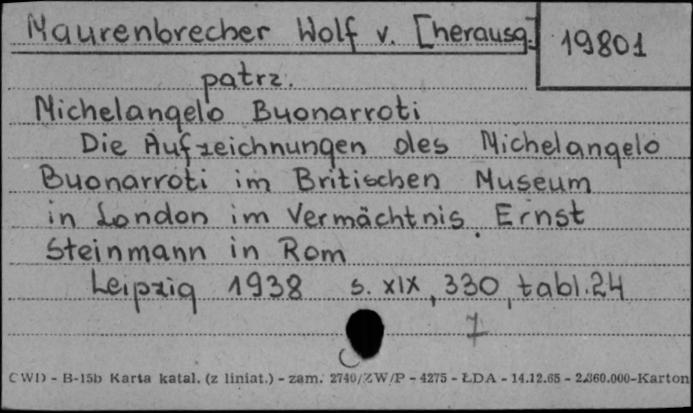 Maurenbrecher Wolf v. [herausg.]
19801
patrz.
Michelangelo Buonarroti
Die Aufzeichnungen des Michelangelo
Buonarroti im Britischen Museum
in London im Vermächtnis Ernst
Steinmann in Rom
Leipzig 1938 s. XIX, 330, tabl. 24
7
CWD - B-15b Karta katal. (z liniat.) - zam. 2740/ZW/P - 4275 - ŁDA - 14.12.65 - 2.360.000-Karton